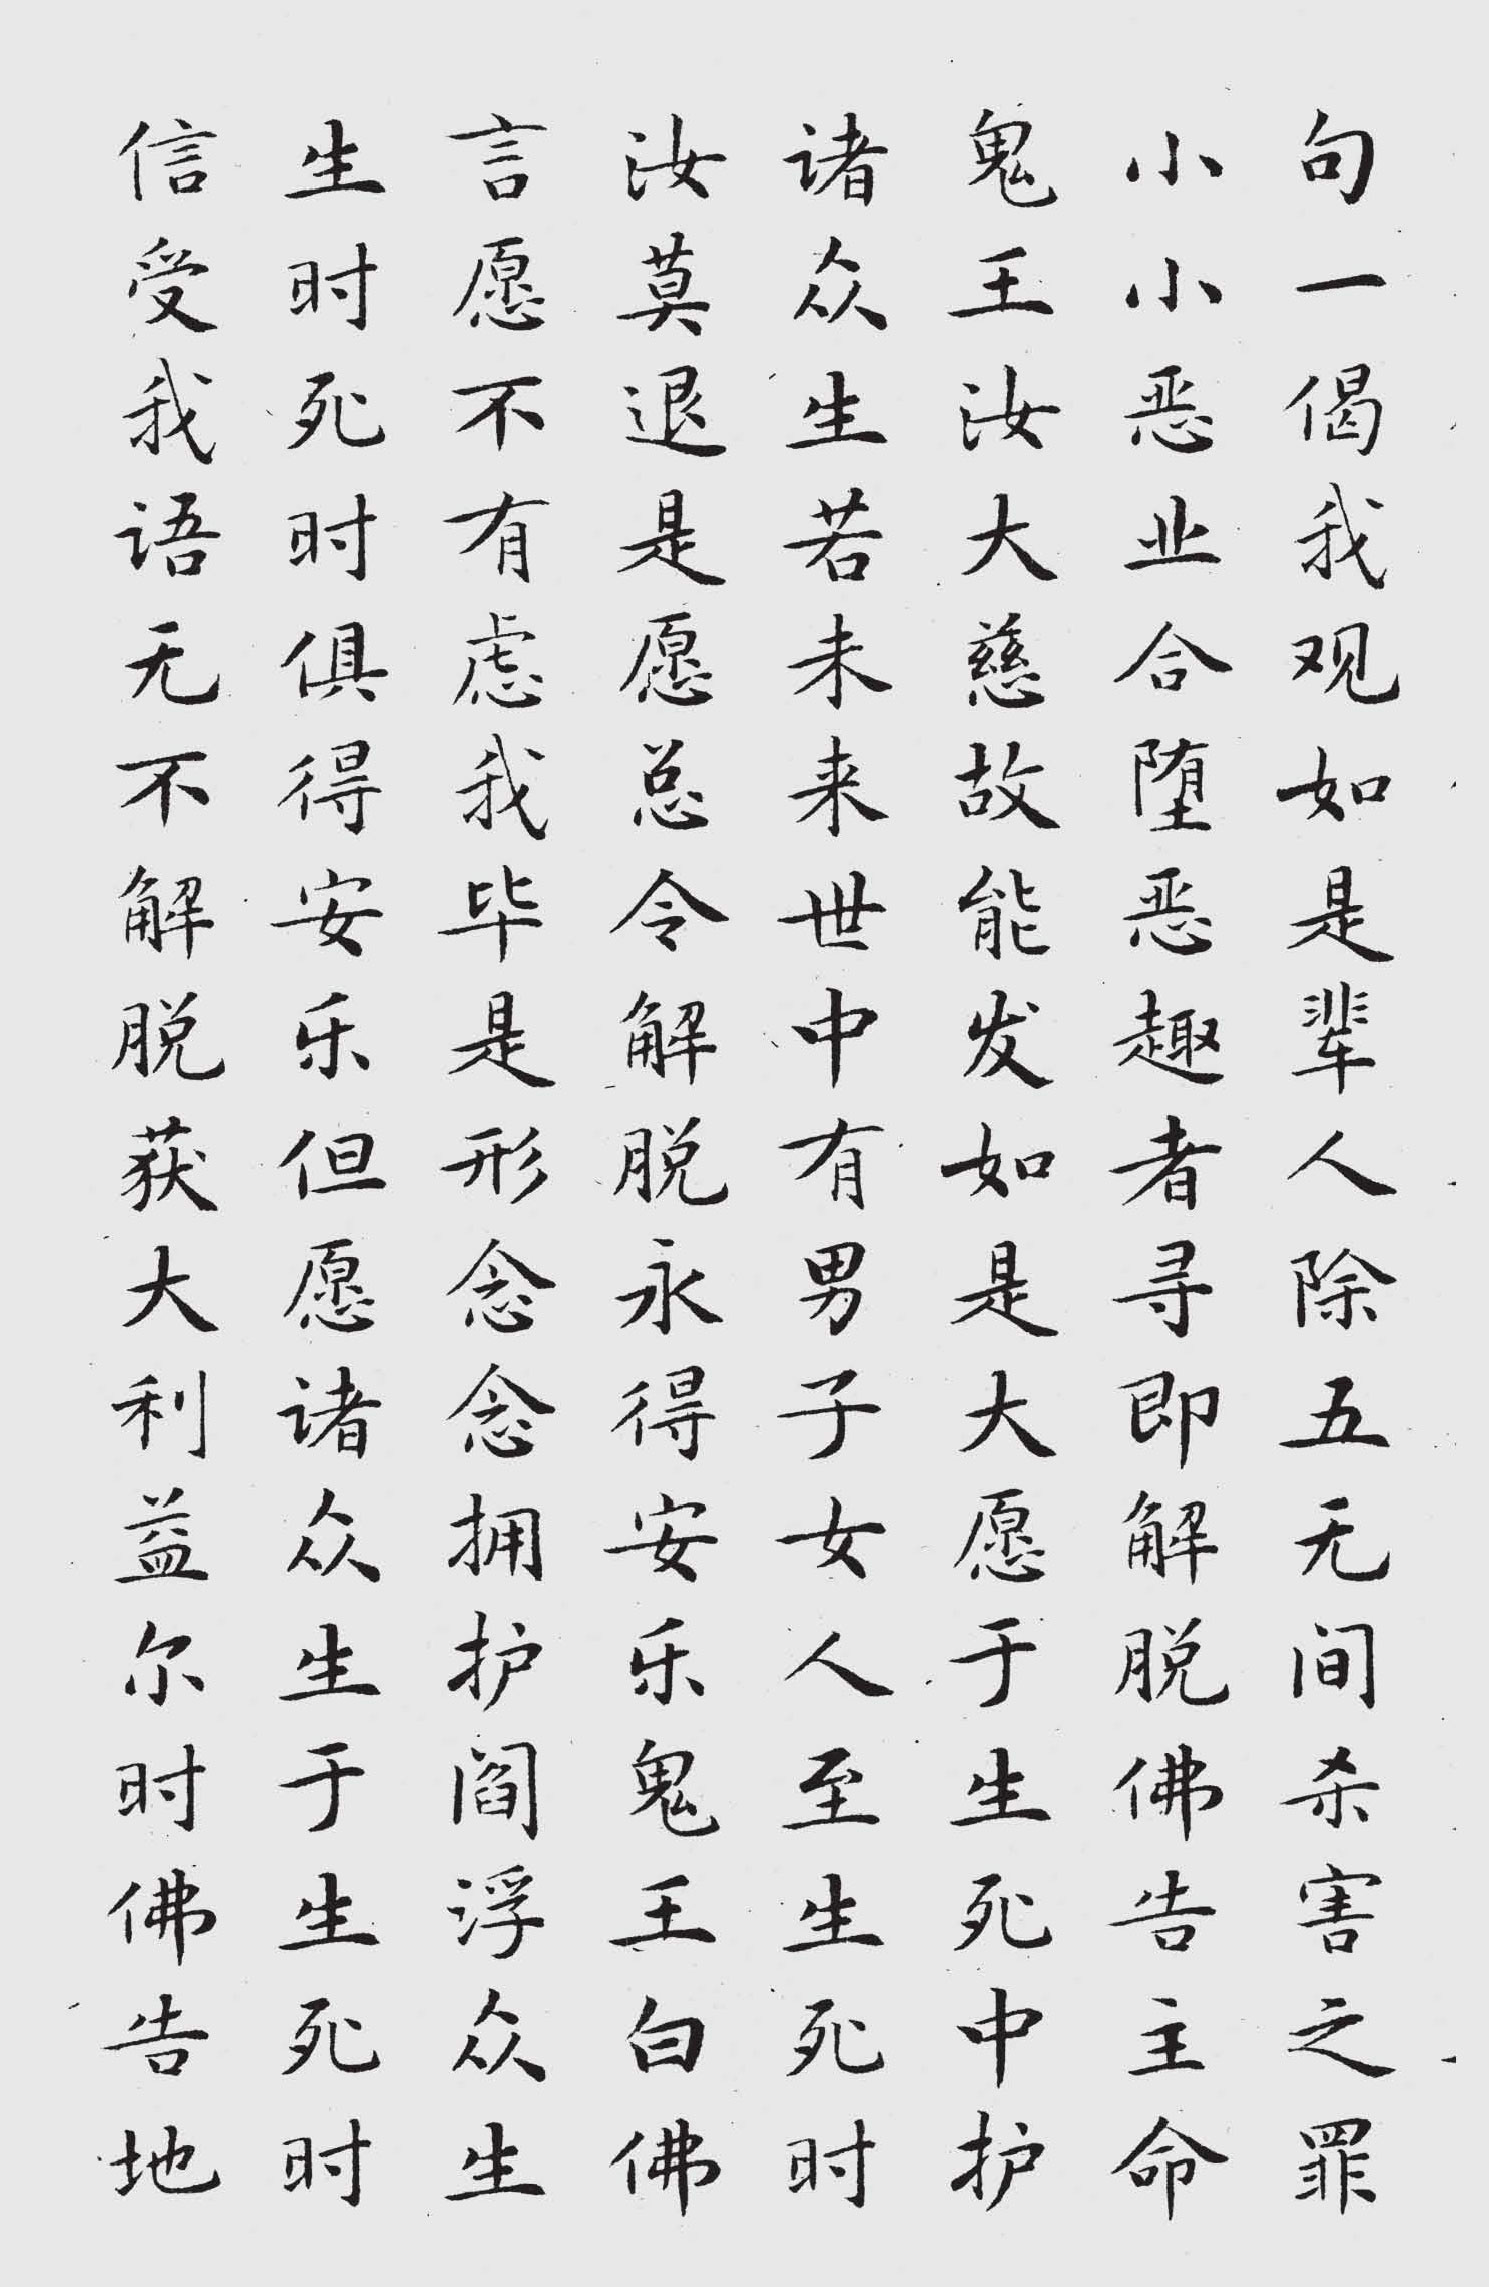 句一偈我观如是辈人除五无间杀害之罪
小小恶业合堕恶趣者寻即解脱佛告主命
鬼王汝大慈故能发如是大愿于生死中护
诸众生若未来世中有男子女人至生死时
汝莫退是愿总令解脱永得安乐鬼王白佛
言愿不有虑我毕是形念念拥护阎浮众生
生时死时俱得安乐但愿诸众生于生死时
信受我语无不解脱获大利益尔时佛告地